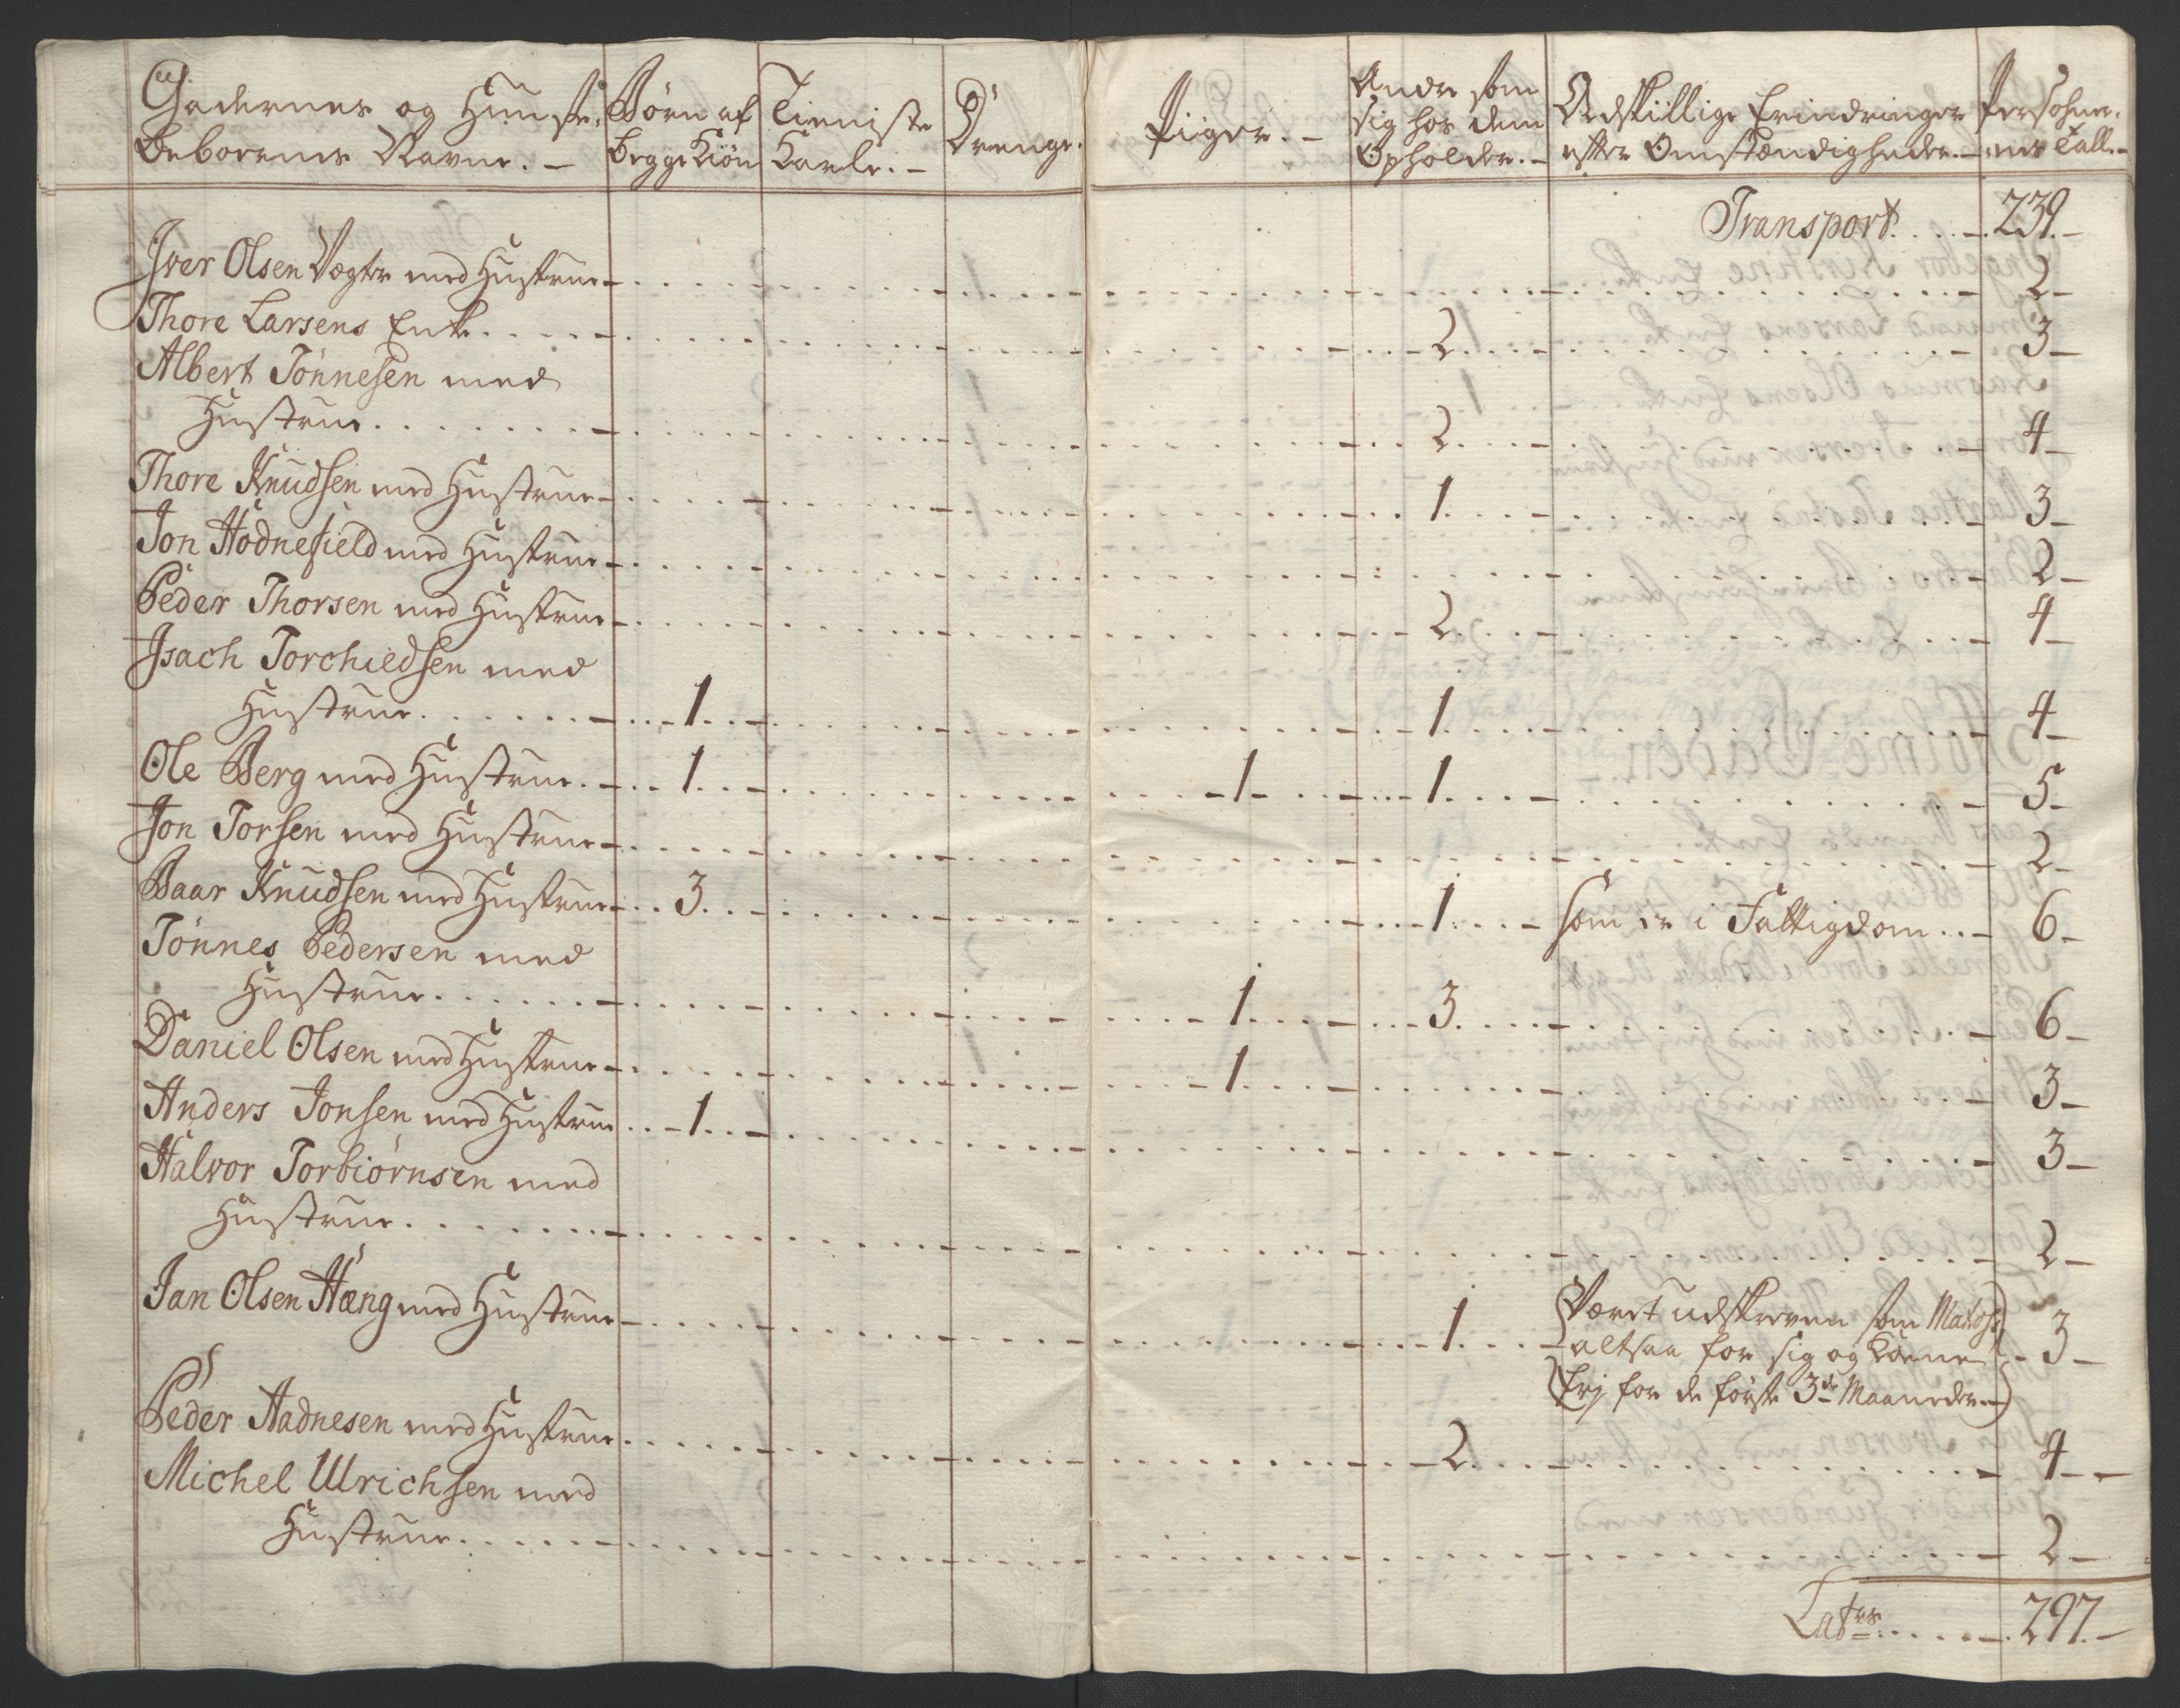 Gadernes og Huusse, Børn af Tieniste Drenge. Piiger. – Andre som Adskillige Erindringer Persohner,
Beboernes Navne. – begge Kiøn Karle. – sig hos dem efter Omstændigheder. – nes Tall. –
Opholder. –
Transport . . . . 239. –
Iver Olsen Vægter med Hustrue – 2 –
Thore Larsens Enke . . . . 2 . . . . 3 –
Albert Tönnesen med
Hustrue . . . . 2 . . . . 4 –
Thore Knudsen med Hustrue – 1 . . . . 3 –
Jon Hodnefield med Hustrue – 2 –
Peder Thorsen med Hustrue – 2 . . . . 4 –
Isach Torchieldsen med
Hustrue . . . . 1 . . . . 1 . . . . 4 –
Ole Berg med Hustrue . – 1 . . . . 1 . . . . 1 . . . . 5 –
Jon Torsen med Hustrue – 2 –
Baar Knudsen med Hustrue – 3 . . . . 1 . . . . som er i Fattigdom . . – 6 –
Tönnes Pedersen med
Hustrue . . . . 1 . . . . 3 . . . . 6 –
Daniel Olsen med Hustrue – 1 . . . . 3 –
Anders Jonsen med Hustrue . . 1 . . . . 3 –
Halvor Torbiörnsen med
Hustrue . . . . 2 –
Jan Olsen Hæng med Hustrue – 1 . . . . Været udskreven som Matros 3 –
altsaa for sig og Konen
frj for de förste 3de Maaneder. –
Peder Aadnesen med Hustrue . . . . 2 . . . . 4 –
Michel Ulrichsen med
Hustrue . . . . 2 –
Latus . . . . 297. –